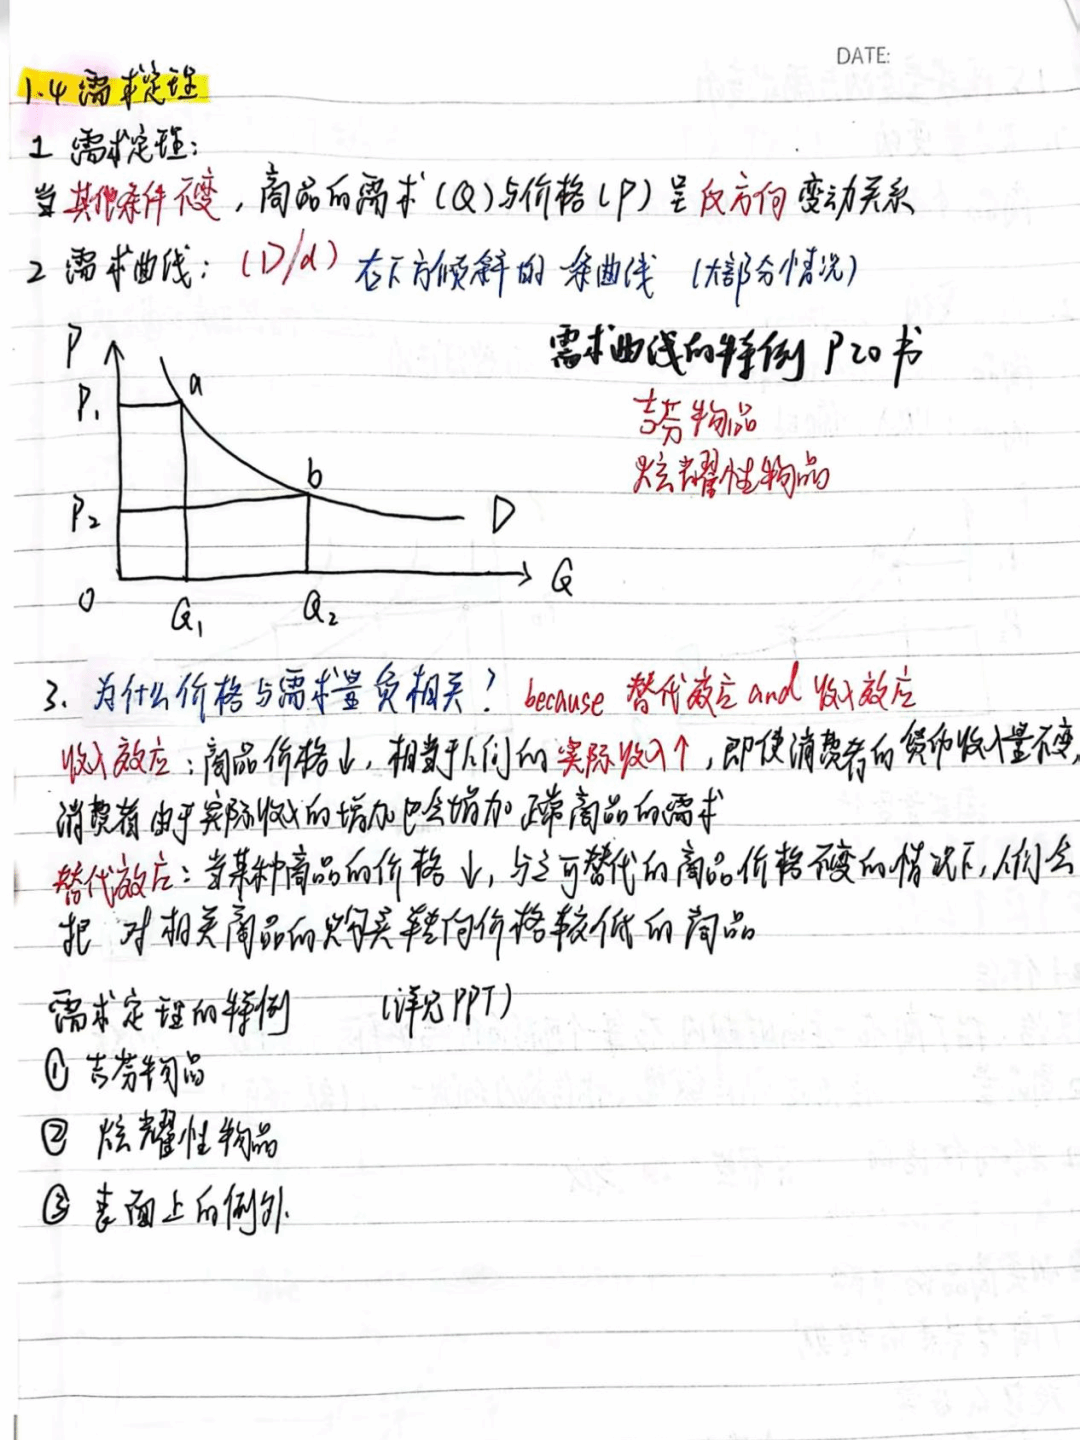 DATE:
1.4 需求定理
1 需求定理:
当其他条件不变，商品的需求(Q)与价格(P)呈反方向变动关系
2 需求曲线: (D/d) 右下方倾斜的一条曲线 (大部分情况)
需求曲线的特例 P20 书
吉芬物品
炫耀性物品
P
P₁
a
b
P₂
D
O
Q₁
Q₂
Q
3. 为什么价格与需求量负相关? because 替代效应 and 收入效应
收入效应: 商品价格↓, 相当于人们的实际收入↑, 即使消费者的货币收入量不变,
消费者由于实际收入的增加也会增加正常商品的需求
替代效应: 当某种商品的价格↓, 与之可替代的商品价格不变的情况下, 人们会
把 对相关商品的购买转向价格较低的商品
需求定理的特例 (详见PPT)
① 吉芬物品
② 炫耀性物品
③ 表面上的例外.